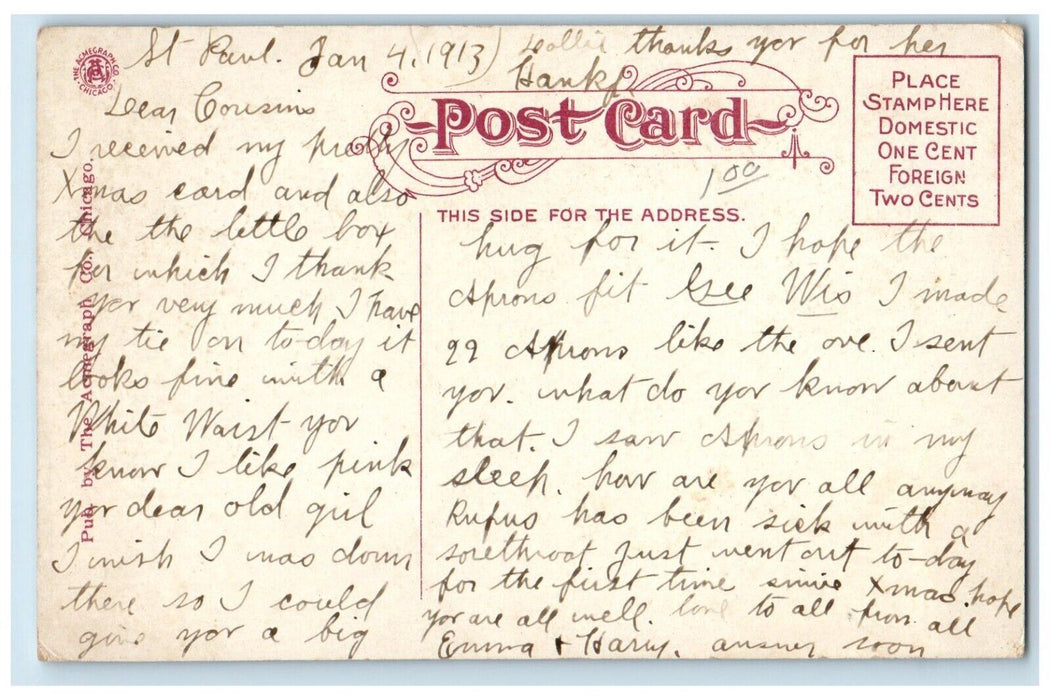 St Paul. Jan 4, 1913)
Dollie thanks yor for her
Hankf
THE ACMEGRAPH CO.
CHICAGO.
Post Card
PLACE
STAMP HERE
DOMESTIC
ONE CENT
FOREIGN
TWO CENTS
THIS SIDE FOR THE ADDRESS.
1 00
Pub. by The Acmegraph Co., Chicago.
Dear Cousins
I received my pretty
Xmas card and also
the the little box
for which I thank
yor very much I have
my tie on to-day it
looks fine with a
White Waist yor
know I like pink
yor dear old girl
I wish I was down
there so I could
give yor a big
hug for it - I hope the
Aprons fit Gee Wis I made
99 Aprons like the one I sent
yor. what do yor know about
that. I saw Aprons in my
sleep. how are yor all anyway
Rufus has been sick with a
sorethroat just went out to-day
for the first time since Xmas. hope
yor are all well. love to all from all
Emma + Harry. answer soon